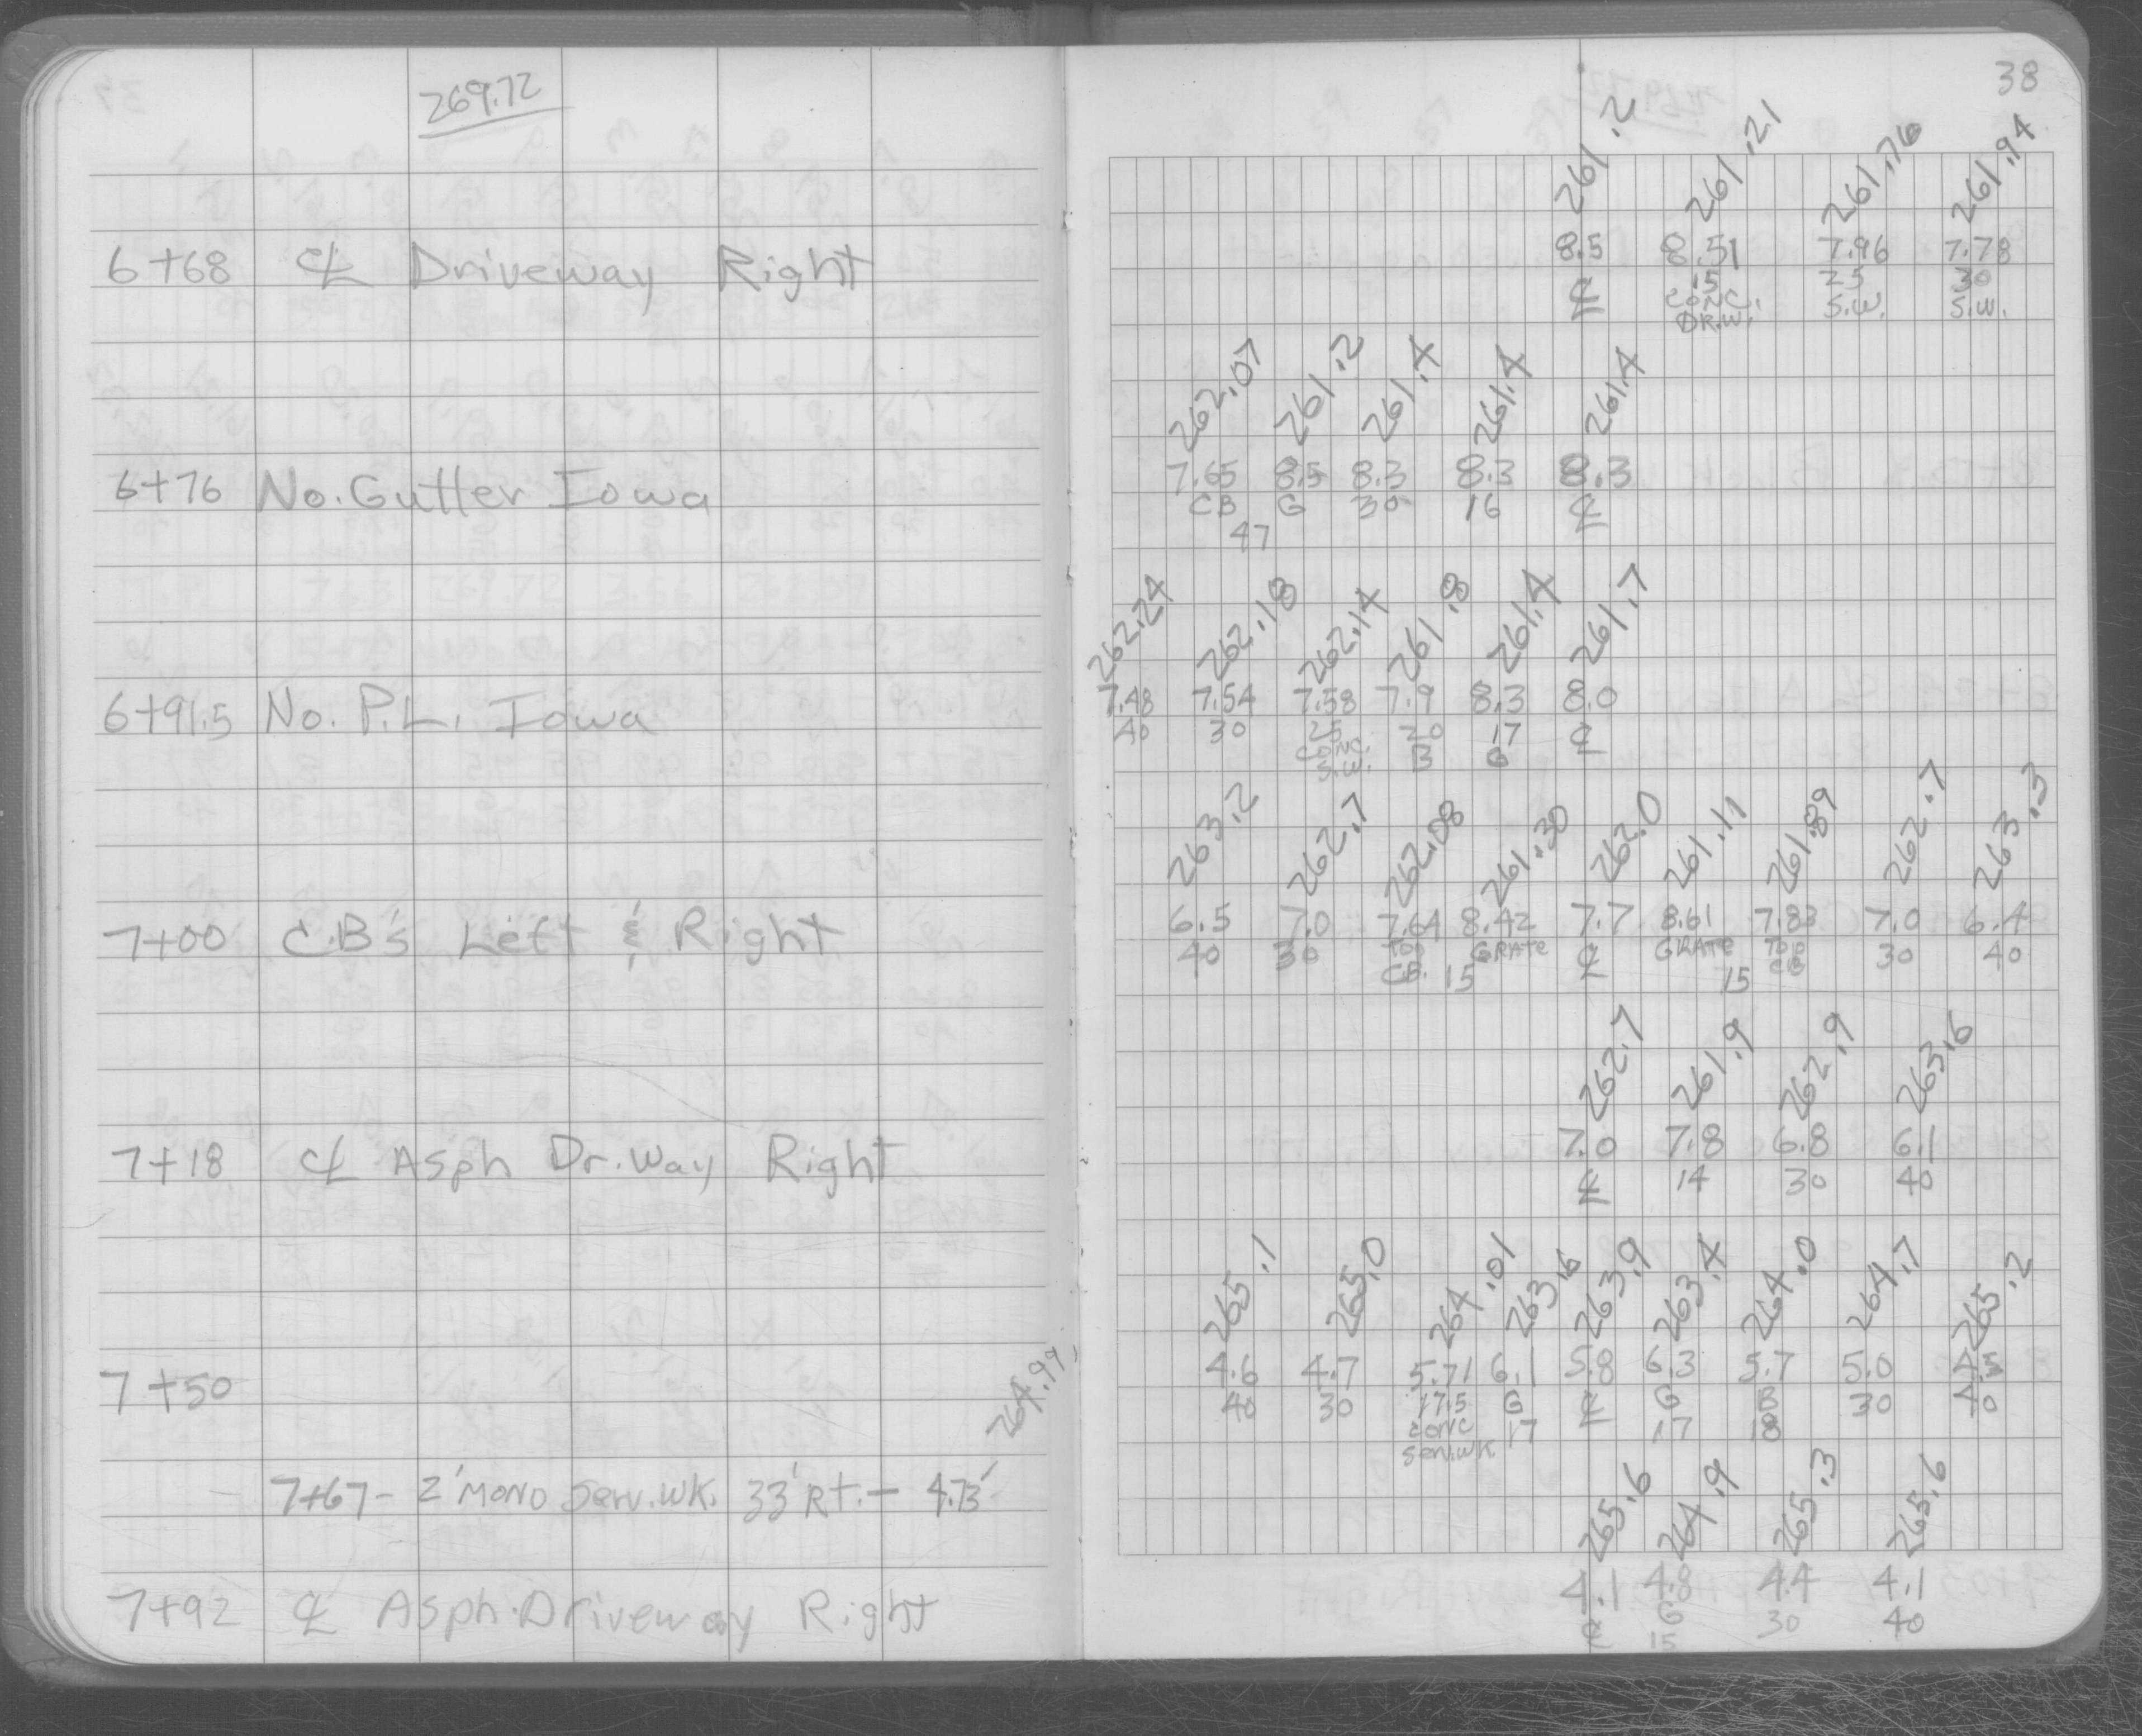 269.72
38
261.2 261.21 261.76 261.94
6+68 ℄ Driveway Right 8.5 8.51 7.96 7.78
℄ 15 25 30
CONC. S.W. S.W.
DR.W.
262.07 261.2 261.4 261.4 261.4
6+76 No. Gutter Iowa 7.65 8.5 8.3 8.3 8.3
CB G 30 16 ℄
47
262.24 262.18 262.14 261.8 261.4 261.7
6+91.5 No. P.L. Iowa 7.48 7.54 7.58 7.9 8.3 8.0
40 30 25 20 17 ℄
CONC. B G
S.W.
263.2 262.7 262.08 261.30 262.0 261.11 261.89 262.7 263.3
7+00 C.B's Left & Right 6.5 7.0 7.64 8.42 7.7 8.61 7.83 7.0 6.4
40 30 TOP GRATE ℄ GRATE TOP 30 40
CB. 15 15 CB
262.7 261.9 262.9 263.6
7+18 ℄ Asph Dr.Way Right 7.0 7.8 6.8 6.1
℄ 14 30 40
265.1 265.0 264.01 263.6 263.9 263.4 264.0 264.7 265.2
7+50 4.6 4.7 5.71 6.1 5.8 6.3 5.7 5.0 4.5
40 30 17.5 G ℄ G B 30 40
CONC 17 17 18
Serv.WK
264.99
7+67- 2' MONO Serv.WK. 33' Rt.- 4.73'
265.6 264.9 265.3 265.6
7+92 ℄ Asph.Driveway Right 4.1 4.8 4.4 4.1
℄ G 30 40
15